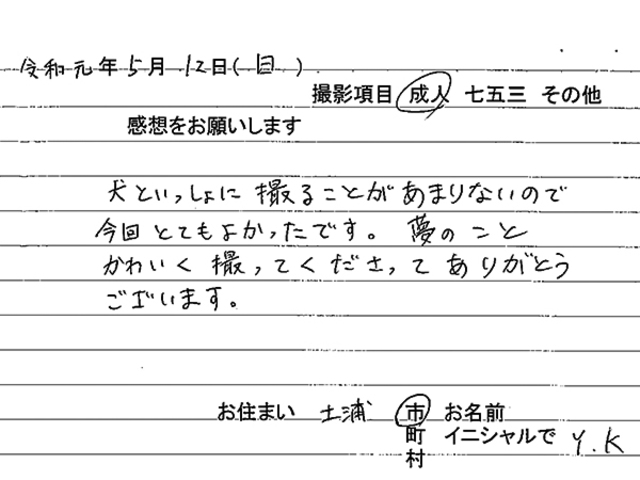 令和元年5月12日(日)
撮影項目 成人 七五三 その他
感想をお願いします
犬といっしょに撮ることがあまりないので
今回とてもよかったです。夢のこと
かわいく撮ってくださってありがとう
ございます。
お住まい 土浦 市 お名前
町 イニシャルで Y.K
村